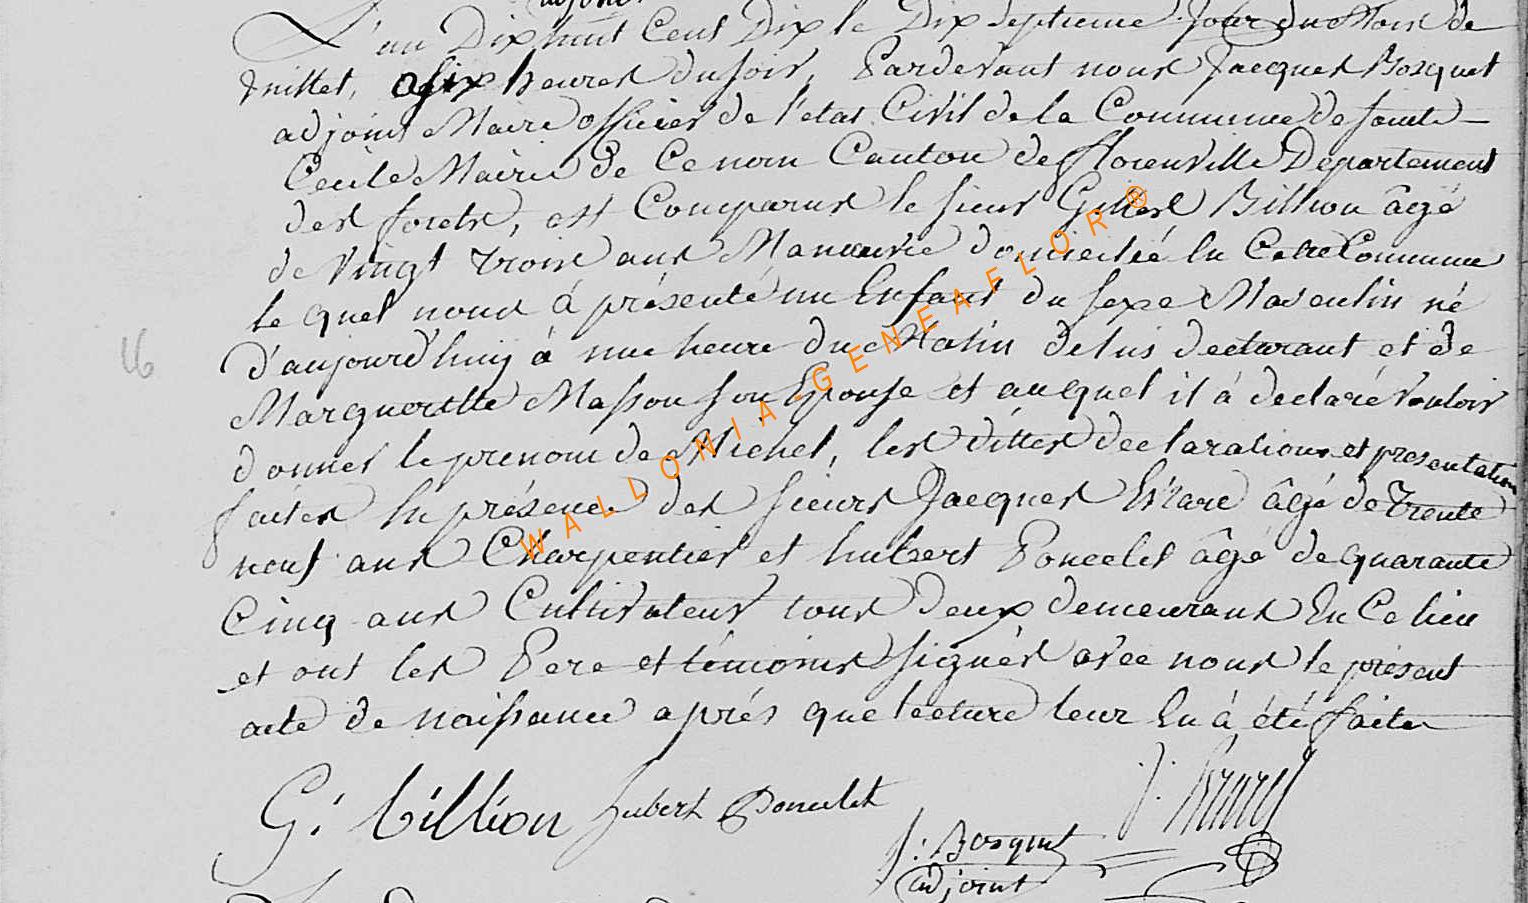 adjoint
L'an Dix huit Cent Dix le Dix septieme Jour du Mois de
Juillet, a six heures du soir, Pardevant nous Jacques Bosquet
adjoint Maire officier de l'etat Civil de la Commune de sainte
Cecile Mairie de Ce nom Canton de florenville Departement
des forets, est Comparus le sieur Gilles Billion âgé
de Vingt trois ans Manœuvre domicilié En Cette Commune
le quel nous á présenté un Enfant du sexe Masculin né
d'aujourd'huy á une heure du Matin de lui declarant et de
Margueritte Masson son Epouse et auquel il á declaré Vouloir
donner le prenom de Michel, les dittes declarations et presentation
faites En présence des sieurs Jacques Evrare âgé de Trente
neuf ans Charpentier et hubert Poncelet âgé de quarante
Cinq ans Cultivateur tous deux demeurans En Ce lieu
et ont les Pere et témoins signés avec nous le présent
acte de naissance aprés que lecture leur En á été faite
G. billion hubert Poncelet J. Evrard
J. Bosquet
adjoint
16
WALLONIA - GENEAFLOR®